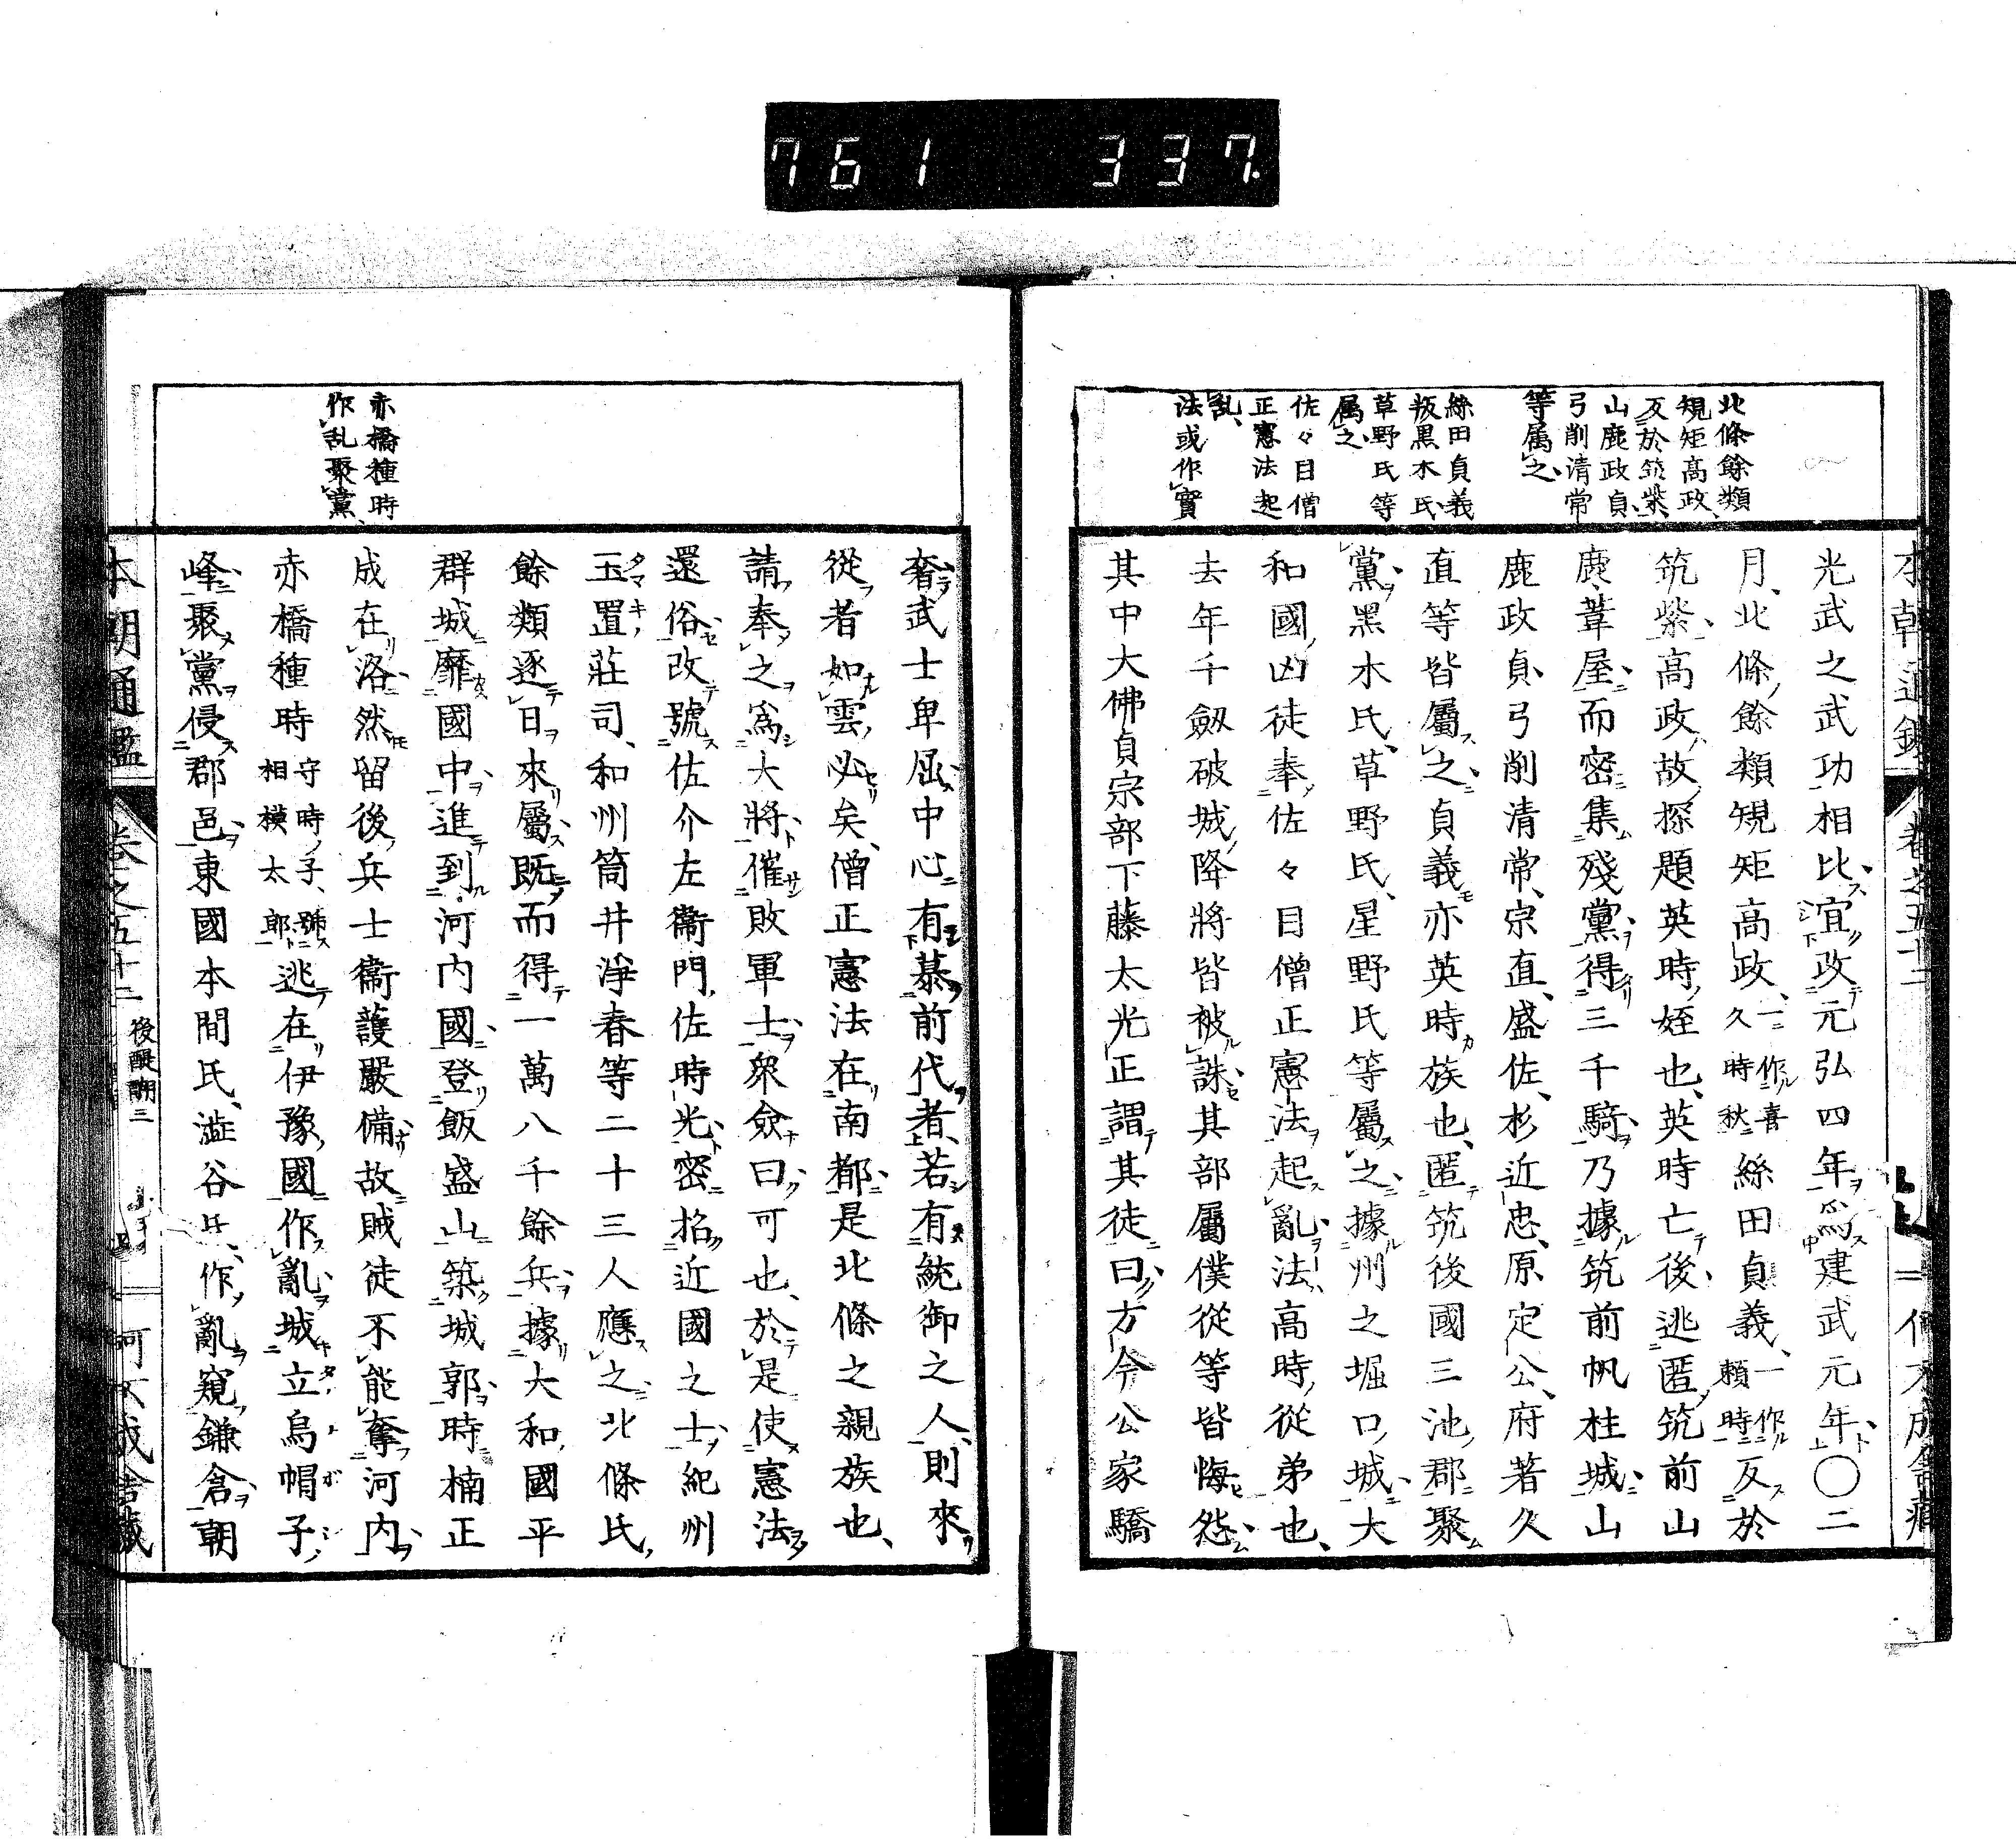 761 337.
北條餘類
規矩髙政、
反於筑紫、
山鹿政貞、
弓削清常
等属之、
絲田貞義
叛黒木氏、
草野氏等
属之、
佐々目僧
正憲法起
乱、
法或作實
光武之武功相比、宜改元弘四年爲建武元年、〇二
月、北條餘類規矩高政、一作喜久時秋絲田貞義、一作賴時反於
筑紫、高政、故探題英時姪也、英時亡後、逃匿筑前山
鹿葦屋、而密集殘黨、得三千騎、乃據筑前帆柱城、山
鹿政貞、弓削清常、宗直、盛佐、杉近忠、原定公、府著久
直等皆屬之、貞義亦英時族也、匿筑後國三池郡、聚
黨、黑木氏、草野氏、星野氏等屬之、據州之堀口城、大
和國凶徒奉佐々目僧正憲法起亂、法、高時從弟也、
去年千劔破城降將皆被誅、其部屬僕從等皆悔怨、
其中大佛貞宗部下藤太光正謂其徒曰、方今公家驕
奢、武士卑屈、中心有慕前代者、若有統御之人、則來
從者如雲必矣、僧正憲法在南都、是北條之親族也、
請奉之爲大將、催敗軍士、衆僉曰、可也、於是使憲法
還俗、改號佐介左衞門佐時光、密招近國之士、紀州
玉置莊司、和州筒井淨春等二十三人應之、北條氏
餘類逐日來屬、既而得一萬八千餘兵、據大和國平
群城、靡國中、進到河内國、登飯盛山築城郭、時楠正
成在洛、然留後兵士衞護嚴備、故賊徒不能奪河内、
赤橋種時守時子、號相模太郎逃在伊豫國作亂、城立烏帽子
峰、聚黨侵郡邑、東國本間氏、澁谷氏、作亂窺鎌倉、朝
赤橋種時
作乱聚黨、
本朝通鑑 卷之五十二 後醍醐三